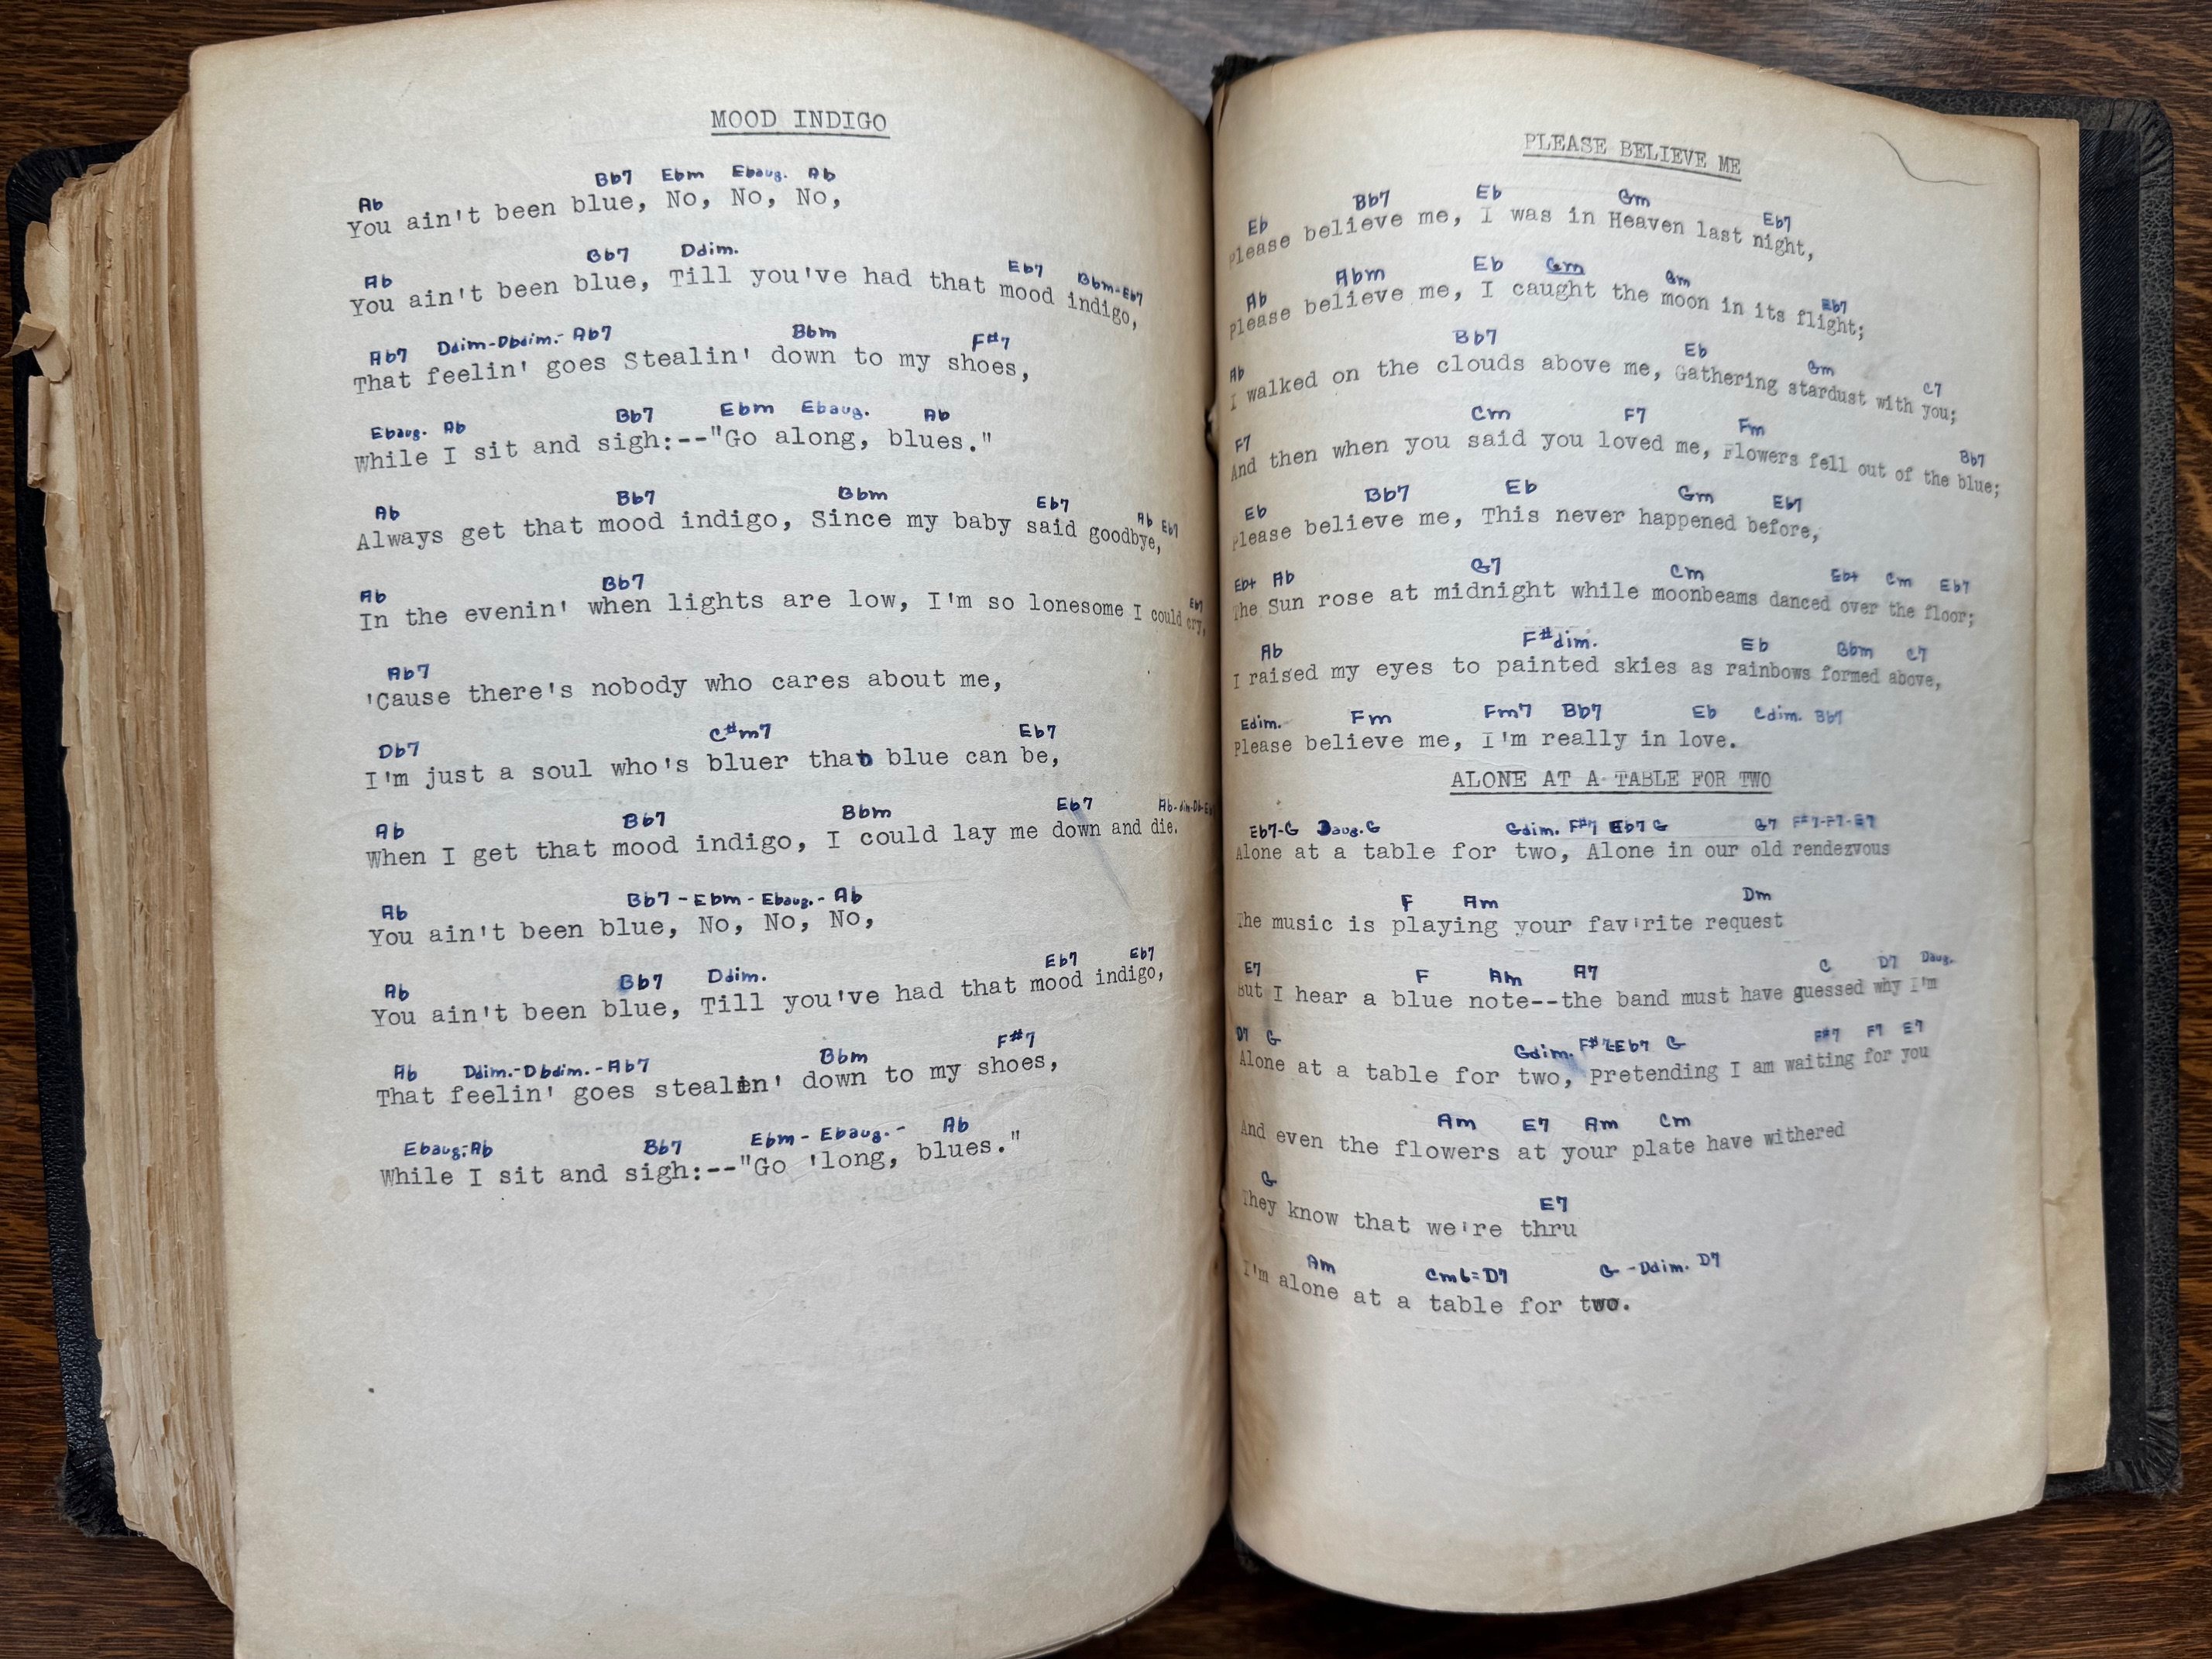 MOOD INDIGO
Ab Bb7 Ebm Ebaug. Ab
You ain't been blue, No, No, No,
Ab Bb7 Ddim. Eb7 Bbm-Eb7
You ain't been blue, Till you've had that mood indigo,
Ab7 Ddim-Dbdim.- Ab7 Bbm F#7
That feelin' goes Stealin' down to my shoes,
Ebaug. Ab Bb7 Ebm Ebaug. Ab
While I sit and sigh:--"Go along, blues."
Ab Bb7 Bbm Eb7 Ab Eb7
Always get that mood indigo, Since my baby said goodbye,
Ab Bb7 Eb7
In the evenin' when lights are low, I'm so lonesome I could cry,
Ab7
'Cause there's nobody who cares about me,
Db7 C#m7 Eb7
I'm just a soul who's bluer than blue can be,
Ab Bb7 Bbm Eb7
When I get that mood indigo, I could lay me down and die.
Ab Bb7 - Ebm - Ebaug. - Ab
You ain't been blue, No, No, No,
Ab Bb7 Ddim. Eb7 Eb7
You ain't been blue, Till you've had that mood indigo,
Ab Ddim.-Dbdim.-Ab7 Bbm F#7
That feelin' goes stealin' down to my shoes,
Ebaug.-Ab Bb7 Ebm - Ebaug. - Ab
While I sit and sigh:--"Go 'long, blues."
PLEASE BELIEVE ME
Eb Bb7 Eb Gm Eb7
Please believe me, I was in Heaven last night,
Ab Abm Eb Gm Gm Eb7
Please believe me, I caught the moon in its flight;
Ab Bb7 Eb Gm C7
I walked on the clouds above me, Gathering stardust with you;
F7 Cm F7 Fm Bb7
And then when you said you loved me, Flowers fell out of the blue;
Eb Bb7 Eb Gm Eb7
Please believe me, This never happened before,
Eb+ Ab G7 Cm Eb+ Cm Eb7
The Sun rose at midnight while moonbeams danced over the floor;
Ab F#dim. Eb Bbm C7
I raised my eyes to painted skies as rainbows formed above,
Edim. Fm Fm7 Bb7 Eb Cdim. Bb7
Please believe me, I'm really in love.
ALONE AT A TABLE FOR TWO
Eb7-G Daug. G Gdim. F#7 Eb7 G G7 F#7-F7-E7
Alone at a table for two, Alone in our old rendezvous
F Am Dm
The music is playing your fav'rite request
E7 F Am A7 C D7 Daug.
But I hear a blue note--the band must have guessed why I'm
D7 G Gdim. F#7-Eb7 G F#7 F7 E7
Alone at a table for two, Pretending I am waiting for you
Am E7 Am Cm
And even the flowers at your plate have withered
G E7
They know that we're thru
Am Cm6=D7 G -Ddim. D7
I'm alone at a table for two.